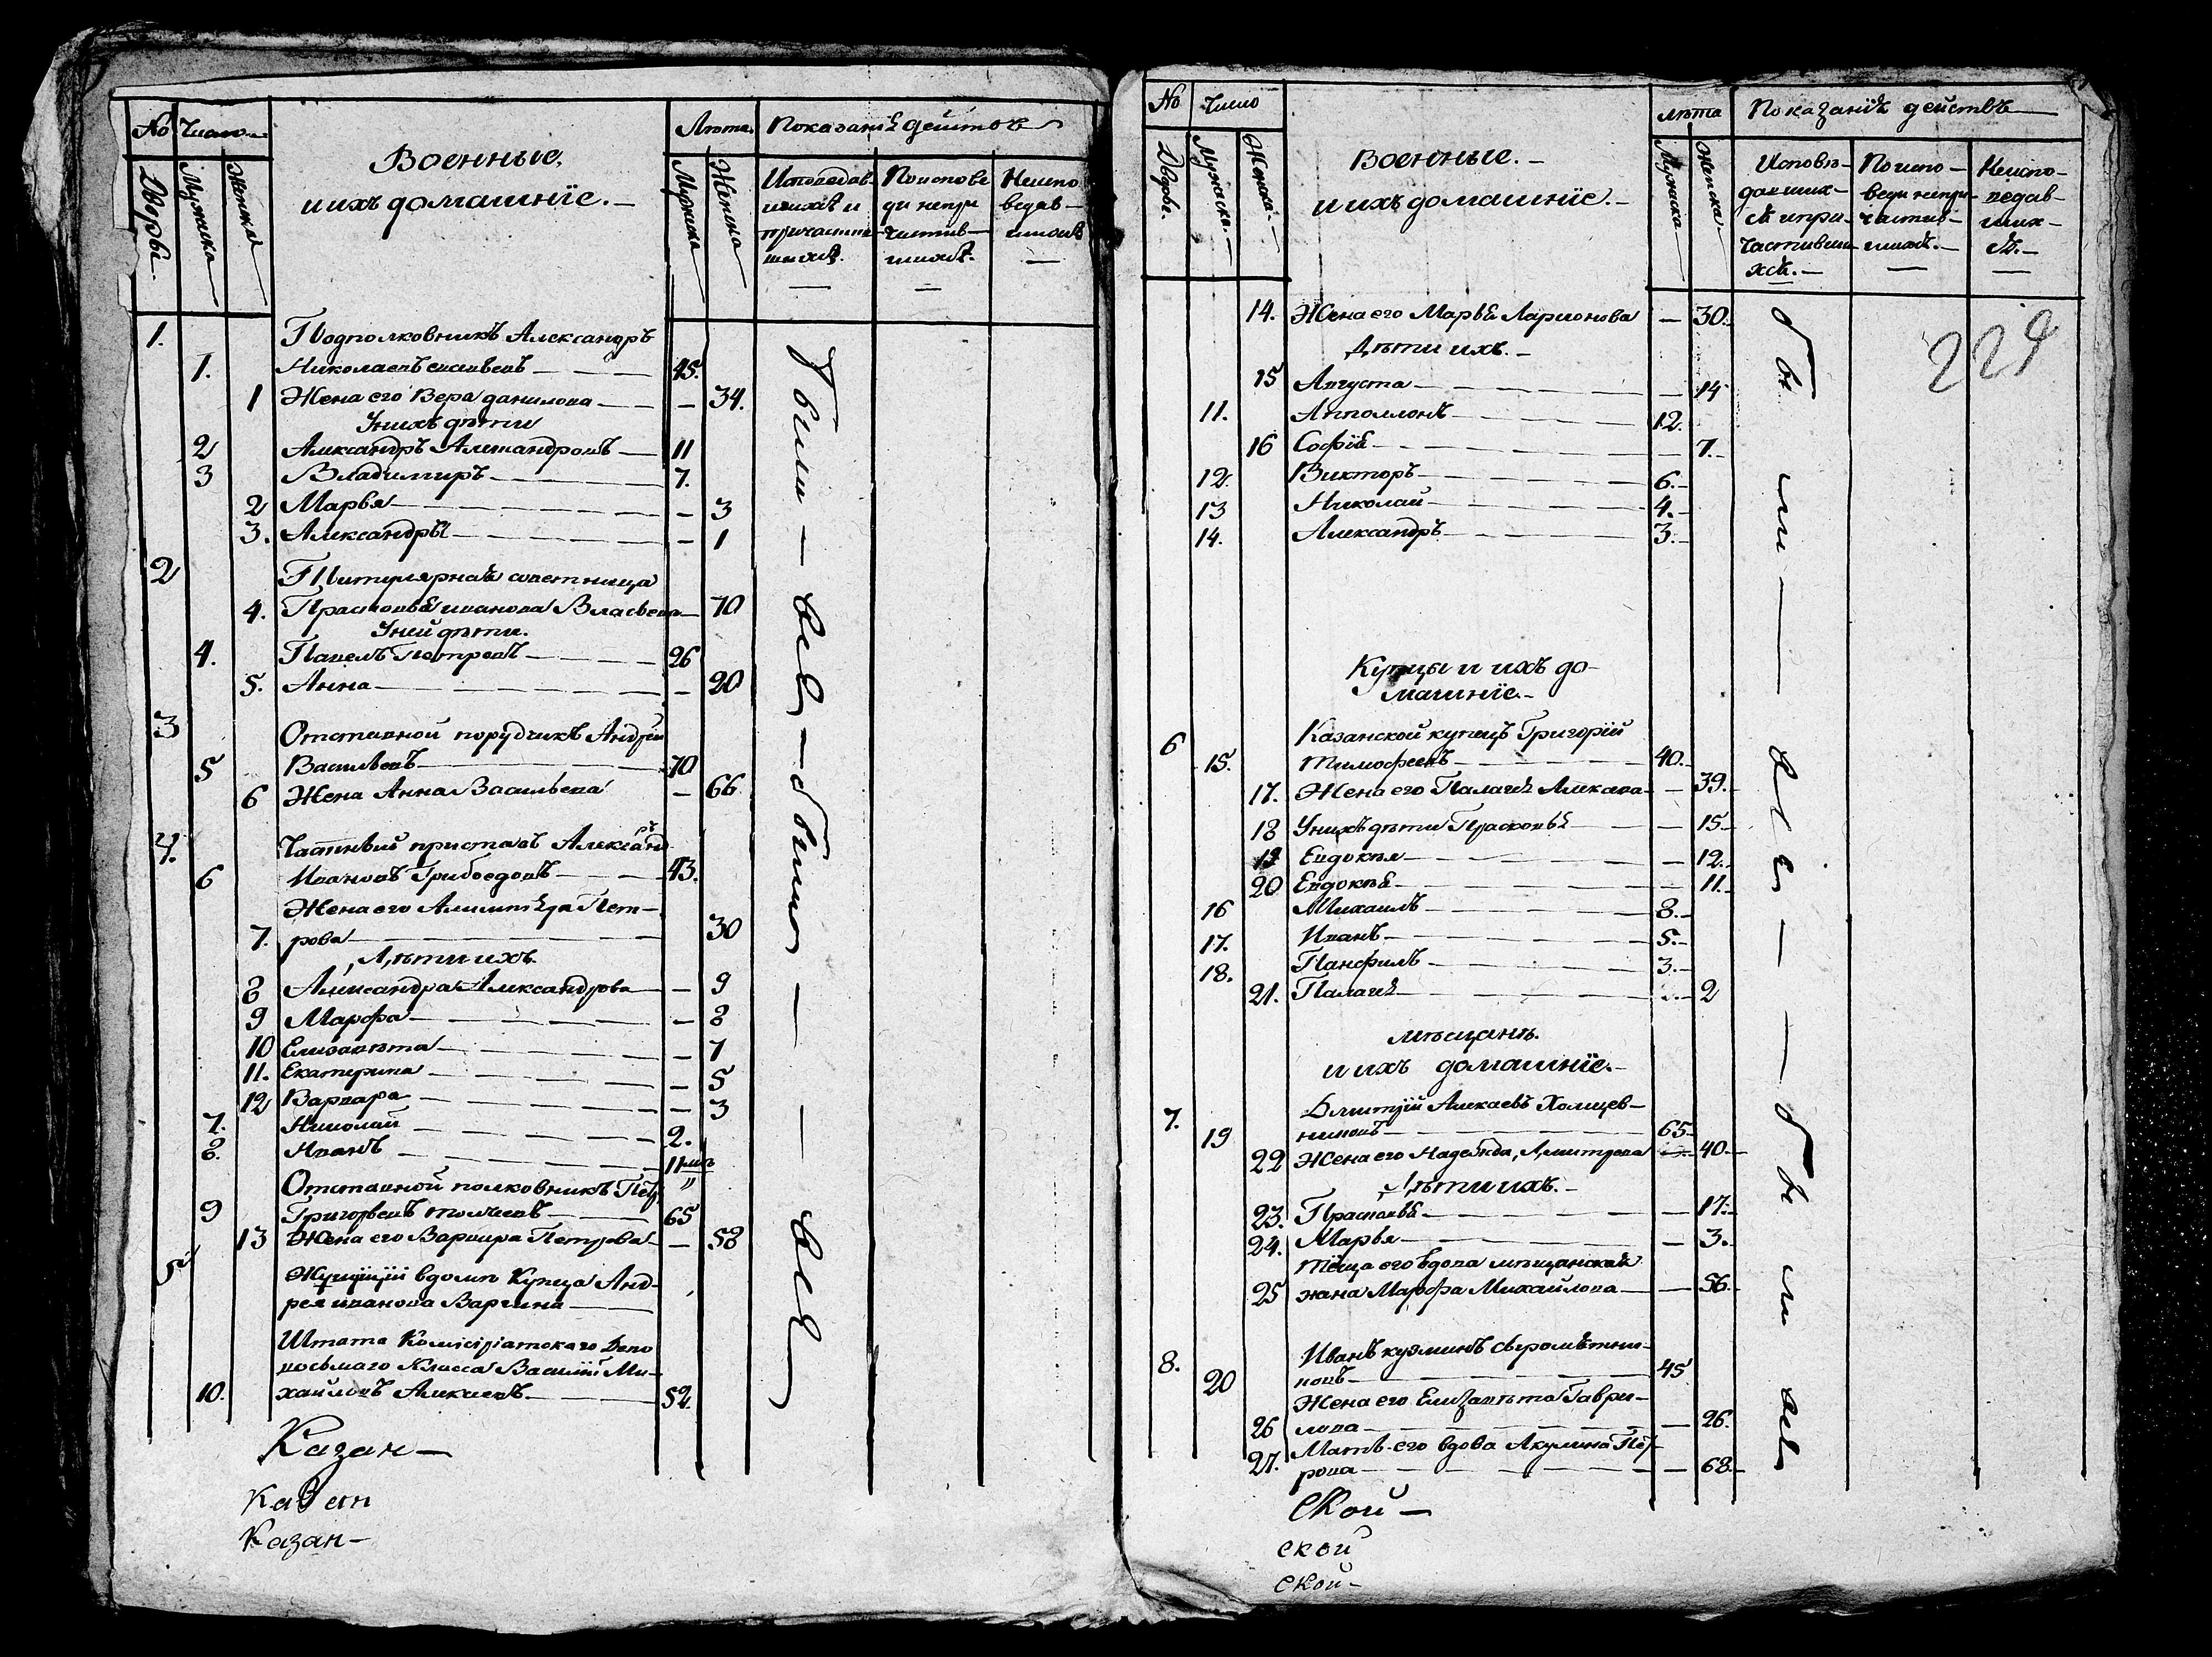 No Число Лѣта Показанія действъ
Дворы. Мужска Женска
Военные.
и ихъ домашніе.
Мужска Женска
Исповедав-
шихся и
причастив-
шихся.
По испове
ди непри
частив-
шихся.
Неиспо
ведав-
шихся
1. Подполковникъ Александръ
1. Николаевъ 45.
1 Жена его Вера данилова — 34.
У нихъ дѣти
2 Александръ Александровъ 11
3 Владимиръ 7.
2 Марья — 3
3. Александра — 1
2 Титулярная советница
4. Прасковья иванова Власьева — 70
У ней дѣти.
4. Павелъ Петровъ 26
5. Анна — 20
3 Отставной порудчикъ Андрей
5 Васильевъ 70
6 Жена Анна Васильева — 66.
4. Частный приставъ Александръ
6 Ивановъ Грибоедовъ 43.
Жена его Олимпіяда Пет-
7. рова 30
Дѣти ихъ.
8 Александра Александрова — 9
9 Марфа — 8
10 Елизавѣта — 7
11. Екатерина — 5
12 Варвара — 3
7. Николай 2.
8. Иванъ 11 мѣ
Отставной полковникъ Петр
9 Григорьевъ 65
13 Жена его Варвара Петрова — 58
5 Жущіи вдомѣ Купца Анд-
рея иванова Варгина
Штата Комісіріатского Депо
восьмаго Класса Василій Ми-
10. хайловъ Алексеевъ 52.
были — вся — были — вся
Казан—
Казан
Казан—
No Число лѣта Показанія действъ
Дворы. Мужска. Женска.
Военные.
и ихъ домашніе.
Мужска Женска
Исповѣ-
давших-
ся и при-
частивши
хся.
По испо-
веди непри-
частив-
шихся.
Неиспо-
ведав-
ших-
ся.
224
14. Жена его Марья Ларионова — 30.
Дѣти ихъ.
15 Августа — 14
11. Апполлонъ 12.
16 Софія — 7.
12. Викторъ 6.
13 Николай 4.
14. Александръ 3.
Купцы и ихъ до-
машніе.
6 Казанской купецъ Григорій
15. Тимофеевъ 40.
17. Жена его Палагея Алексеева — 39.
18 У нихъ дѣти Прасковья — 15
19 Евдокѣя — 12.
20 Евдокѣя — 11.
16 Михаилъ 8.
17. Иванъ 5.
18. Панфилъ 3.
21. Палагея — 2
мѣщанѣ.
и ихъ домашніе.
7. Дмитрій Алексаевъ Холщев-
19 никовъ 65
22 Жена его Надежда Дмитрева — 40
Дѣти ихъ.
23. Прасковья — 17.
24. Марья — 3.
Тёща его вдова мѣщанская
25 жана Марфа Михайлова — 56.
8. Иванъ кузминъ сыромѣтни-
20 ковъ 45
Жена его Елизавѣта Гаври-
26 лова — 26.
Мать его вдова Акулина Пет-
27. рова — 68
бы ли — вся — бы ли вся
Ской —
ской
ской-